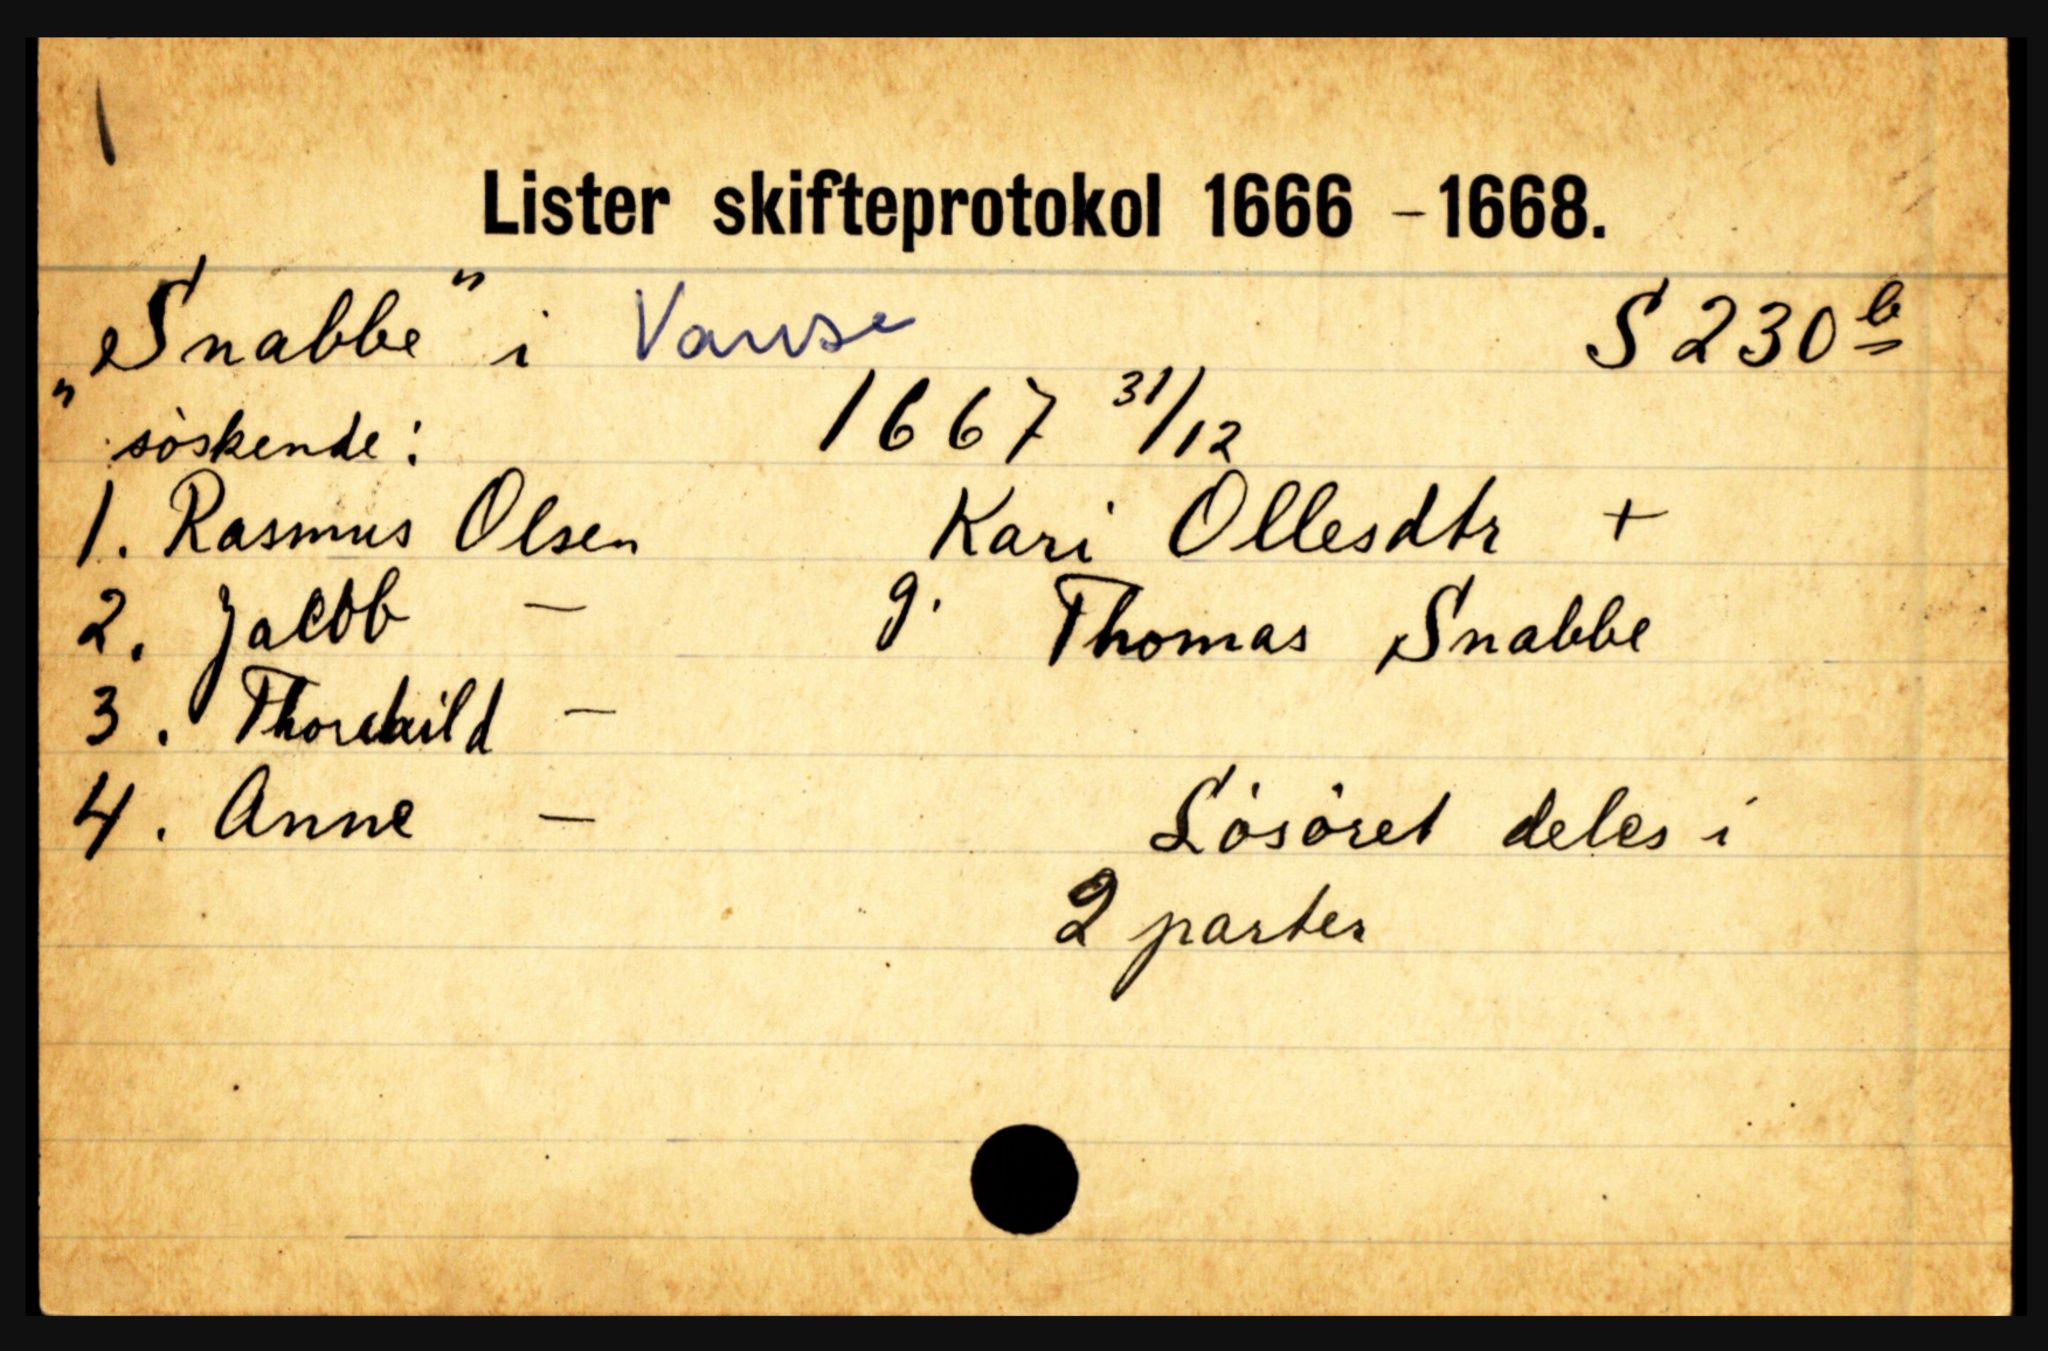 Lister skifteprotokol 1666 - 1668.
"Snabbe" i Vanse S 230 b
søskende: 1667 31/12
1. Rasmus Olsen Kari Ollesdtr +
2. Jacob — g. Thomas Snabbe
3. Thorchild —
4. Anne — Løsøret deles i
2 parter